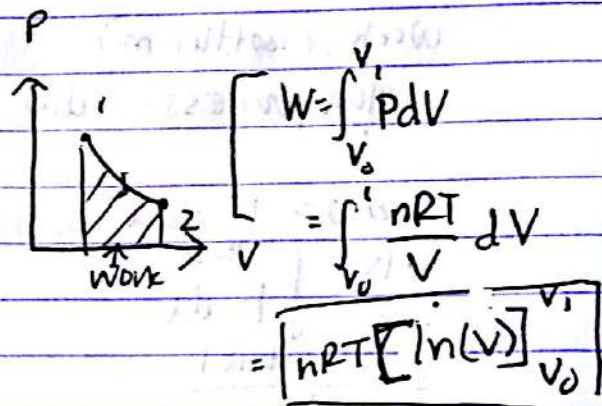 P
1
2
V
work
W = ∫_{V₀}^{V₁} P dV
= ∫_{V₀}^{1} nRT/V dV
= nRT [ln(V)]_{V₀}^{V₁}